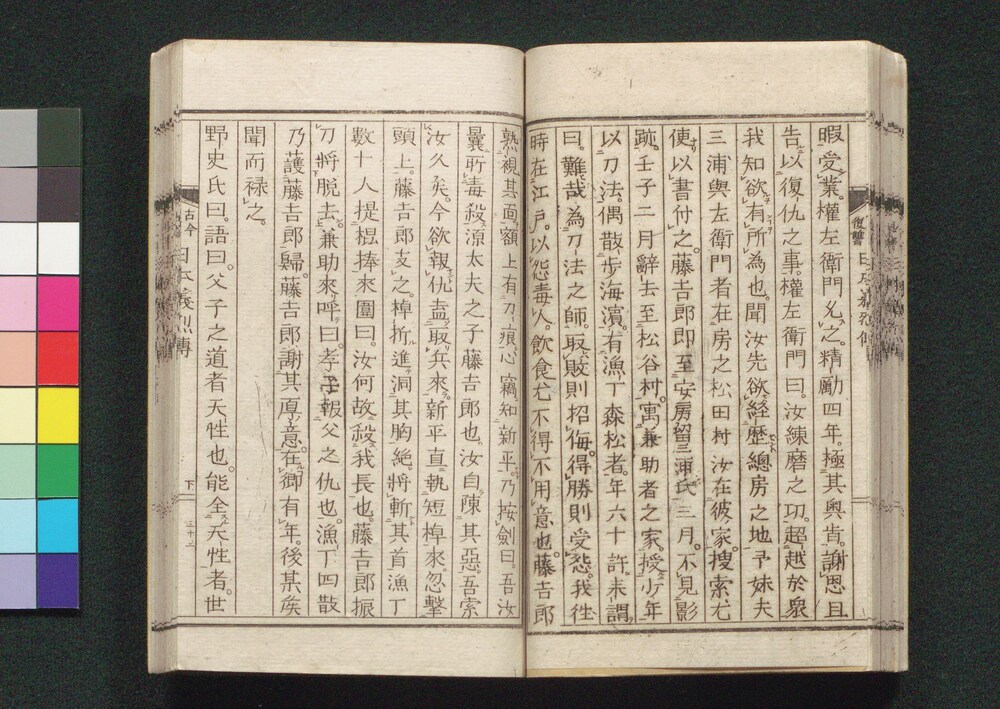 暇受業。權左衛門允之。精勵四年。極其奧旨。謝恩且
告以復仇之事。權左衛門曰。汝練磨之功。超越於衆
我知欲有所為也。聞汝先欲經歷總房之地予妹夫
三浦與左衛門者在房之松田村汝在彼家。搜索尤
便以書付之。藤吉郎即至安房留三浦氏三月。不見影
跡。壬子二月辭去至松谷村。寓兼助者之家。授少年
以刀法。偶散步海濱。有漁丁森松者。年六十許來謂
曰。難哉為刀法之師。取敗則招侮。得勝則受怨。我往
時在江戶。以怨毒人。飲食尤不得不用意也。藤吉郎
熟視其面。額上有刀痕。心竊知新平。乃按劍曰。吾汝
曩所毒殺源太夫之子藤吉郎也。汝自陳其惡。吾索
汝久矣。今欲報仇盍取兵來。新平直執短棹來。忽擊
頭上。藤吉郎支之。棹折進洞其胸絶。將斬其首漁丁
數十人提棍捧來圍曰。汝何故殺我長也。藤吉郎振
刀將脫去。兼助來呼曰。孝子報父之仇也。漁丁四散
乃護藤吉郎歸。藤吉郎謝其厚意。在鄉有年。後某矦
聞而祿之。
野史氏曰。語曰。父子之道者天性也。能全天性者。世
復讐
古今
日本義烈傳
下
三十二